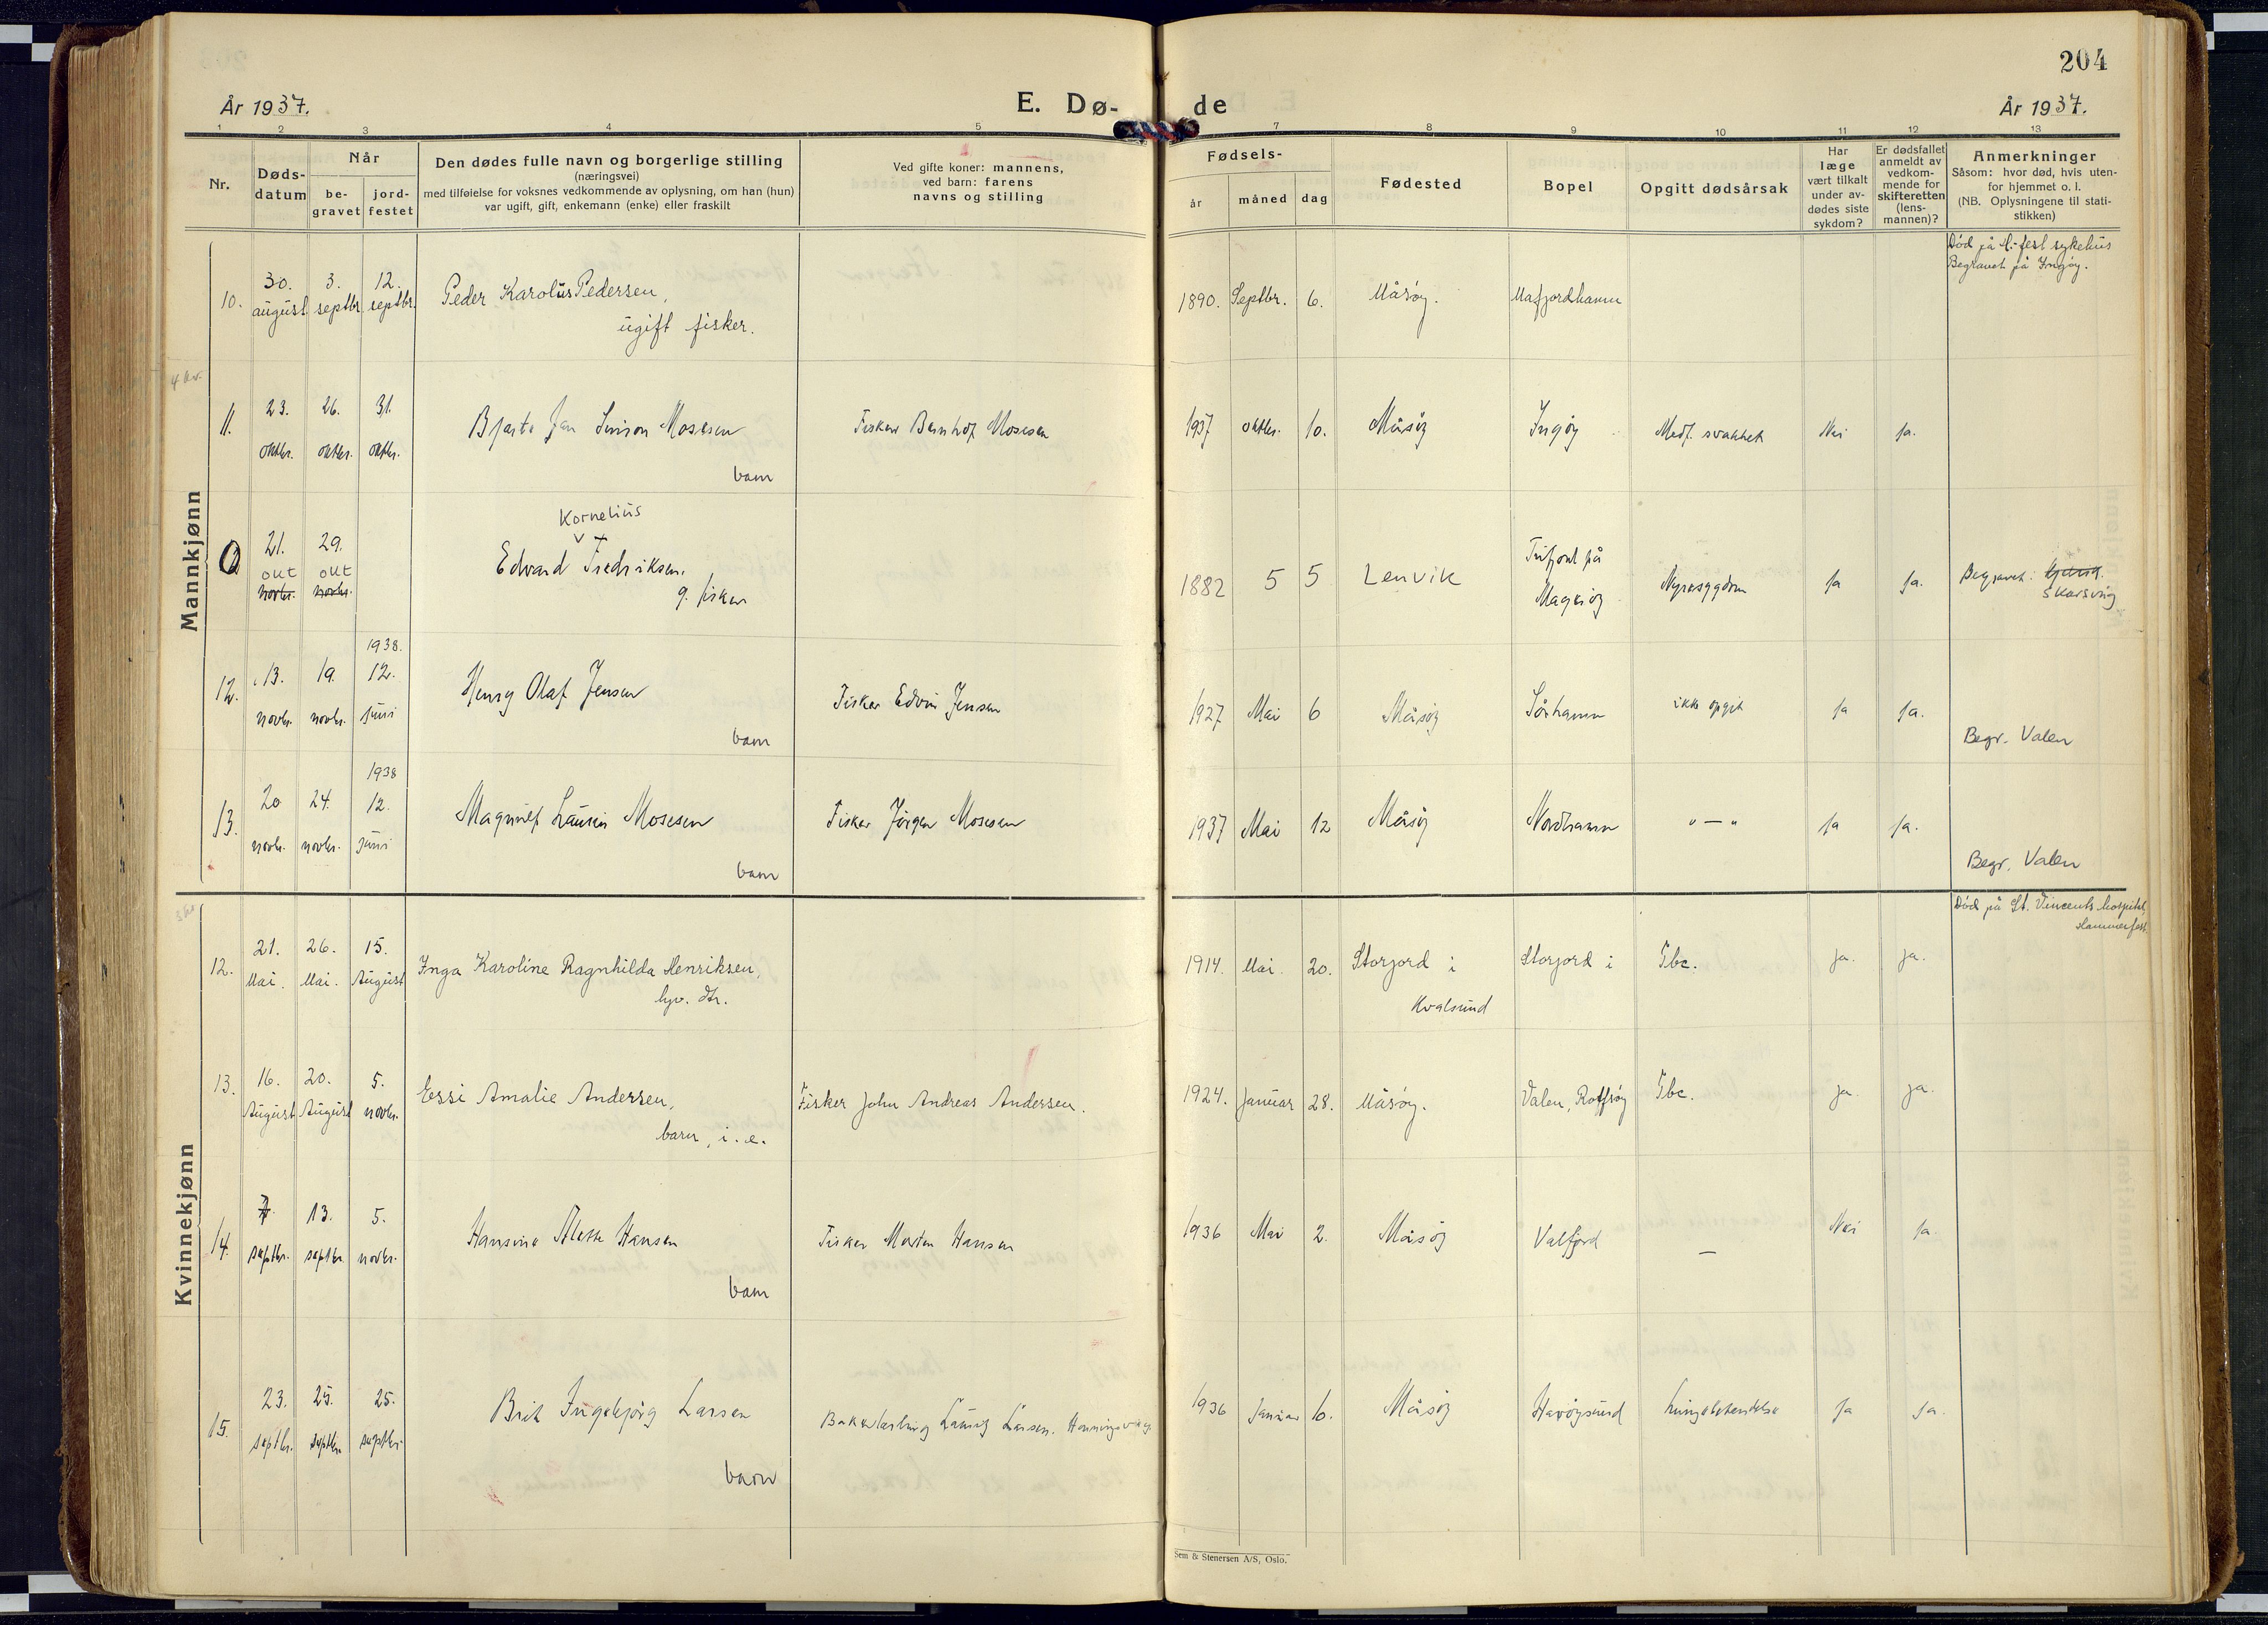 204
År 1937.
E. Dø-
de
År 1937.
1 2 3 4 5 7 8 9 10 11 12 13
Nr.
Døds-
datum
Når
be-
gravet
jord-
festet
Den dødes fulle navn og borgerlige stilling
(næringsvei)
med tilføielse for voksnes vedkommende av oplysning, om han (hun)
var ugift, gift, enkemann (enke) eller fraskilt
Ved gifte koner: mannens,
ved barn: farens
navns og stilling
Fødsels-
år måned dag
Fødested
Bopel
Opgitt dødsårsak
Har
læge
vært tilkalt
under av-
dødes siste
sykdom?
Er dødsfallet
anmeldt av
vedkom-
mende for
skifteretten
(lens-
mannen)?
Anmerkninger
Såsom: hvor død, hvis uten-
for hjemmet o. l.
(NB. Oplysningene til stati-
stikken)
Mannkjønn
Død på H.-fest sykehus
Begravet på Ingøy.
30. 3. 12.
10. august septbr. septbr. Peder Karolus Pedersen, 1890. Septbr. 6. Måsøy. Mafjordhamn
ugift fisker.
23. 26. 31.
11. Bjarte Jan Simon Mosesen Fisker Bernhof Mosesen 1937 oktbr. 10. Måsøy Ingøy Medf. svakhet Nei Ja.
oktbr. oktbr. oktbr.
barn
Kornelius
21. 29.
okt okt Edvard Fredriksen. 1882 5 5 Lenvik Trifjord på Magerøy Nyresygdom Ja Ja. Begravet:
novbr. novbr. g. fisker Skarsvåg
1938.
13. 19. 12.
12. Henry Olaf Jensen Fisker Edvin Jensen 1927 Mai 6 Måsøy Sørhamn ikke opgit Ja Ja.
novbr. novbr. juni
barn Begr. Valen
1938
20 24. 12.
13. Magnulf Laurin Mosesen Fisker Jørgen Mosesen 1937 Mai 12 Måsøy Nordhamn " — " Ja Ja.
novbr. novbr. juni
barn Begr. Valen
Kvinnekjønn
Død på St. Vincents hospital,
Hammerfest
21. 26. 15.
12. Mai. Mai. August Inga Karoline Ragnhilda Henriksen, 1914. Mai. 20. Storjord i Storjord i Tbc. Ja. Ja.
hjv. dtr. Kvalsund
16. 20. 5.
13. August August novbr. Essi Amalie Andersen, Fisker John Andreas Andersen. 1924. Januar 28. Måsøy. Valen, Rolfsøy Tbc. Ja. Ja.
barn, i. e.
7. 13. 5.
14. septbr. septbr. novbr. Hansine Alette Hansen Fisker Morten Hansen 1936 Mai 2. Måsøy Valfjord — Nei Ja.
barn
23. 25. 25.
15. septbr. septbr. septbr. Brit Ingebjørg Larsen Bakerlærling Larsen. Honningsvåg 1936 Januar 6. Måsøy Havøysund Lungebetendelse Ja Ja.
barn
Sem & Stenersen A/S, Oslo.